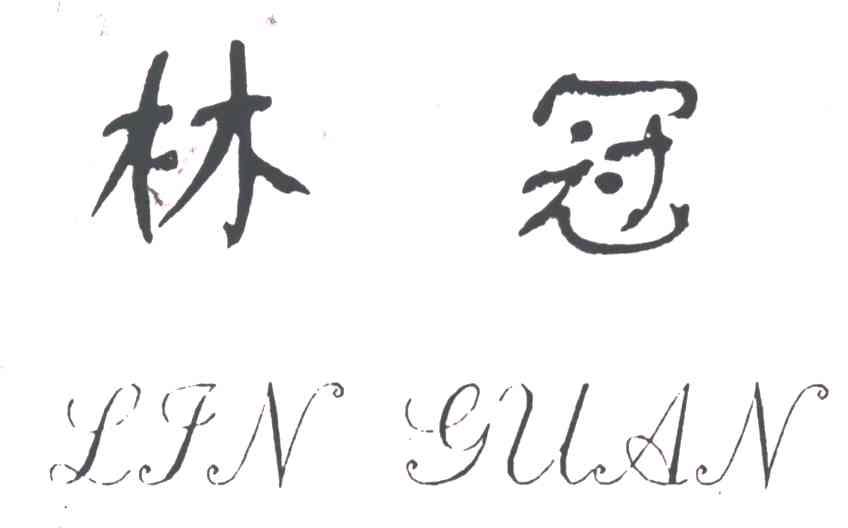 林冠
LIN GUAN